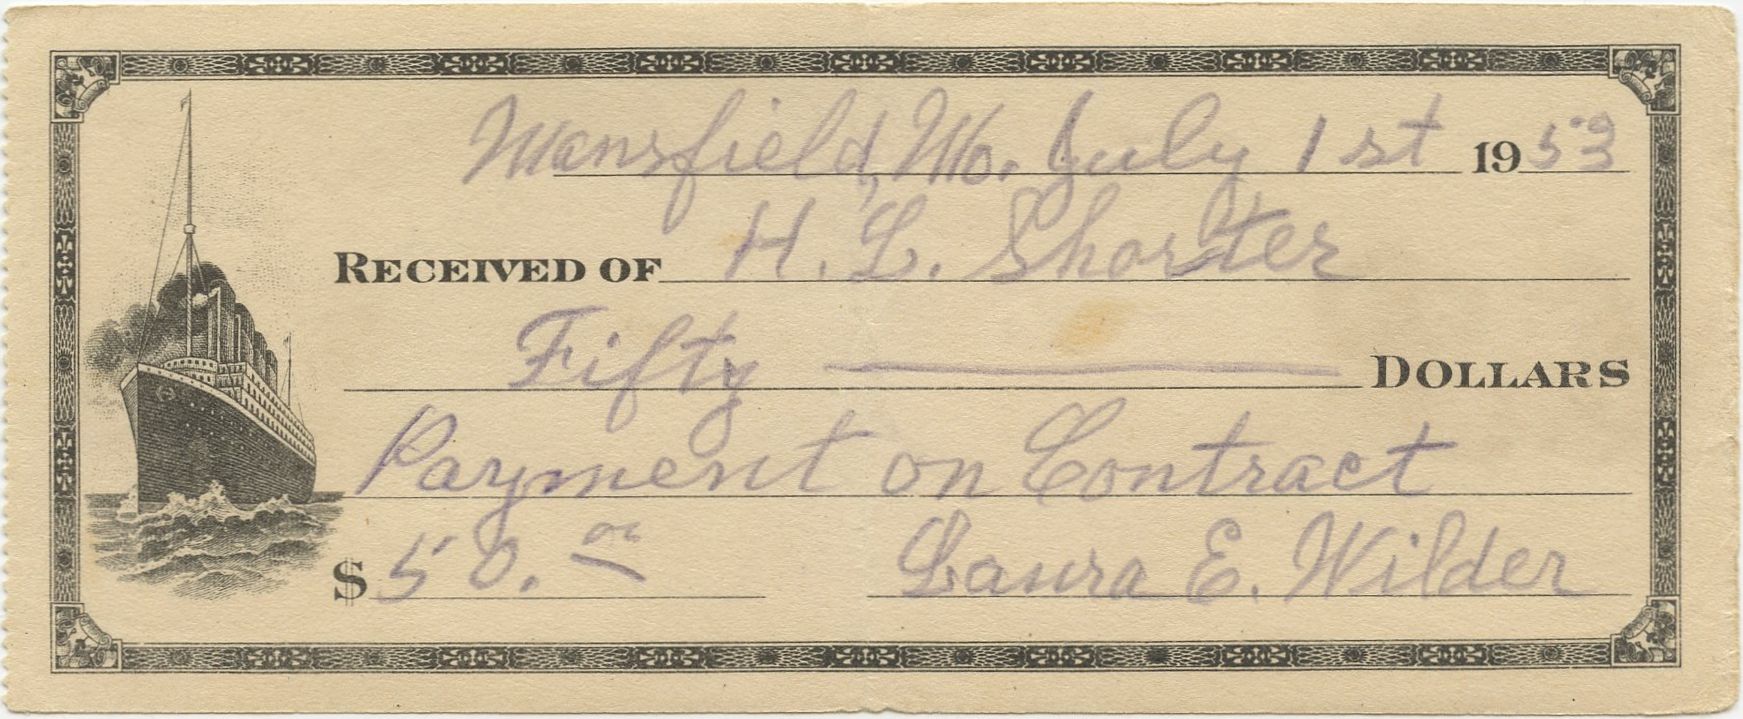 Mansfield, Mo. July 1st 1953
RECEIVED OF H. L. Shorter
Fifty —— DOLLARS
Payment on Contract
$ 50. oo Laura E. Wilder